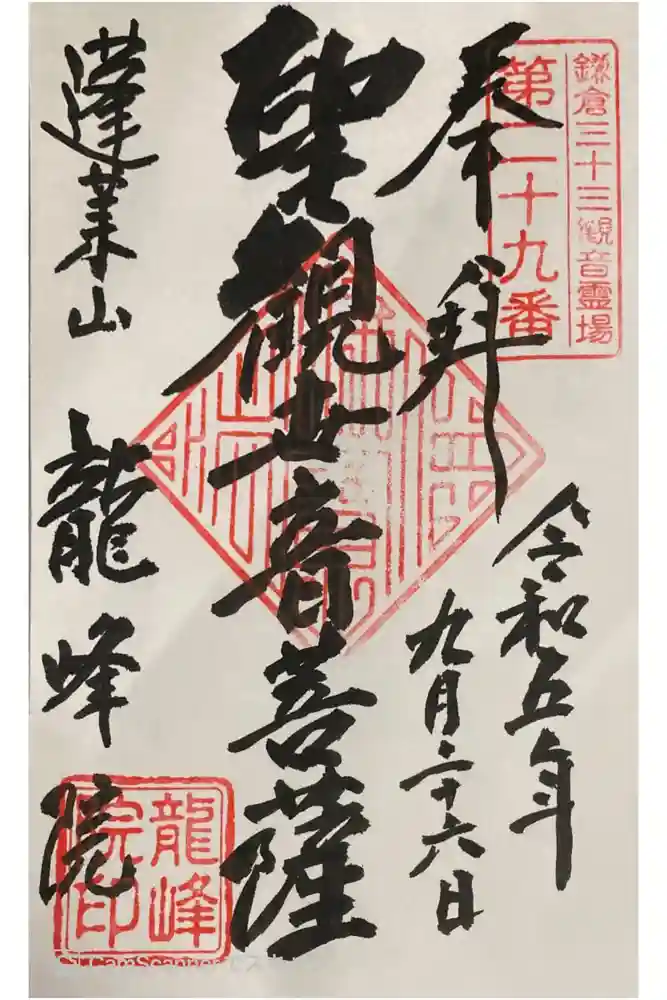 鎌倉三十三観音霊場
第二十九番
奉拝
令和五年
九月二十六日
聖観世音菩薩
蓬莱山 龍峰院
龍峰
院印
CamScanner